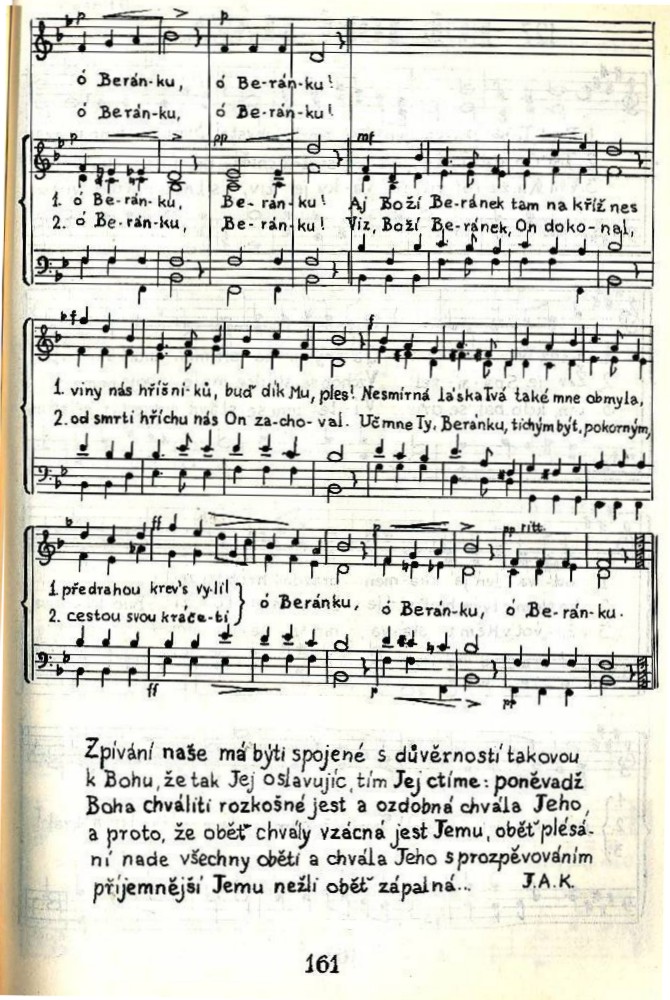 p p
ó Berán-ku, ó Be-rán-ku!
ó Beránku, ó Be-rán-ku!
p pp mf
1. ó Be-rán-ku, Be-rán-ku! Aj Boží Be-ránek tam na kříž nes
2. ó Be-rán-ku, Be-rán-ku! Viz, Boží Be-ránek, On doko-nal,
f f
1. viny nás hříšní-ků, buď dík Mu, ples! Nesmírná láska Tvá také mne obmyla,
2. od smrti hříchu nás On za-cho-val. Uč mne Ty, Beránku, tichým být, pokorným,
ff p pp ritt.
1. předrahou krev's vy-lil
2. cestou svou kráče-ti
ó Beránku, ó Berán-ku, ó Be-rán-ku.
ff p pp
Zpívání naše má býti spojené s důvěrností takovou
k Bohu, že tak Jej oslavujíc, tím Jej ctíme: poněvadž
Boha chváliti rozkošné jest a ozdobná chvála Jeho,
a proto, že oběť chvály vzácná jest Jemu, oběť plésá-
ní nade všechny oběti a chvála Jeho s prozpěvováním
příjemnější Jemu nežli oběť zápalná... J.A.K.
161